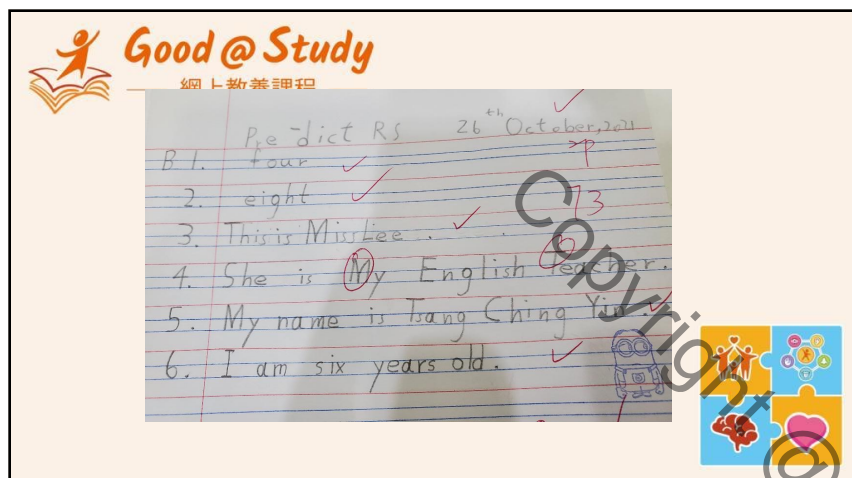 Good @ Study
網上教養課程
Pre-dict RS 26th October, 2021
B 1. four
2. eight
73
3. This is Miss Lee.
4. She is My English Teacher.
5. My name is Tsang Ching Yin.
6. I am six years old.
Copyright @